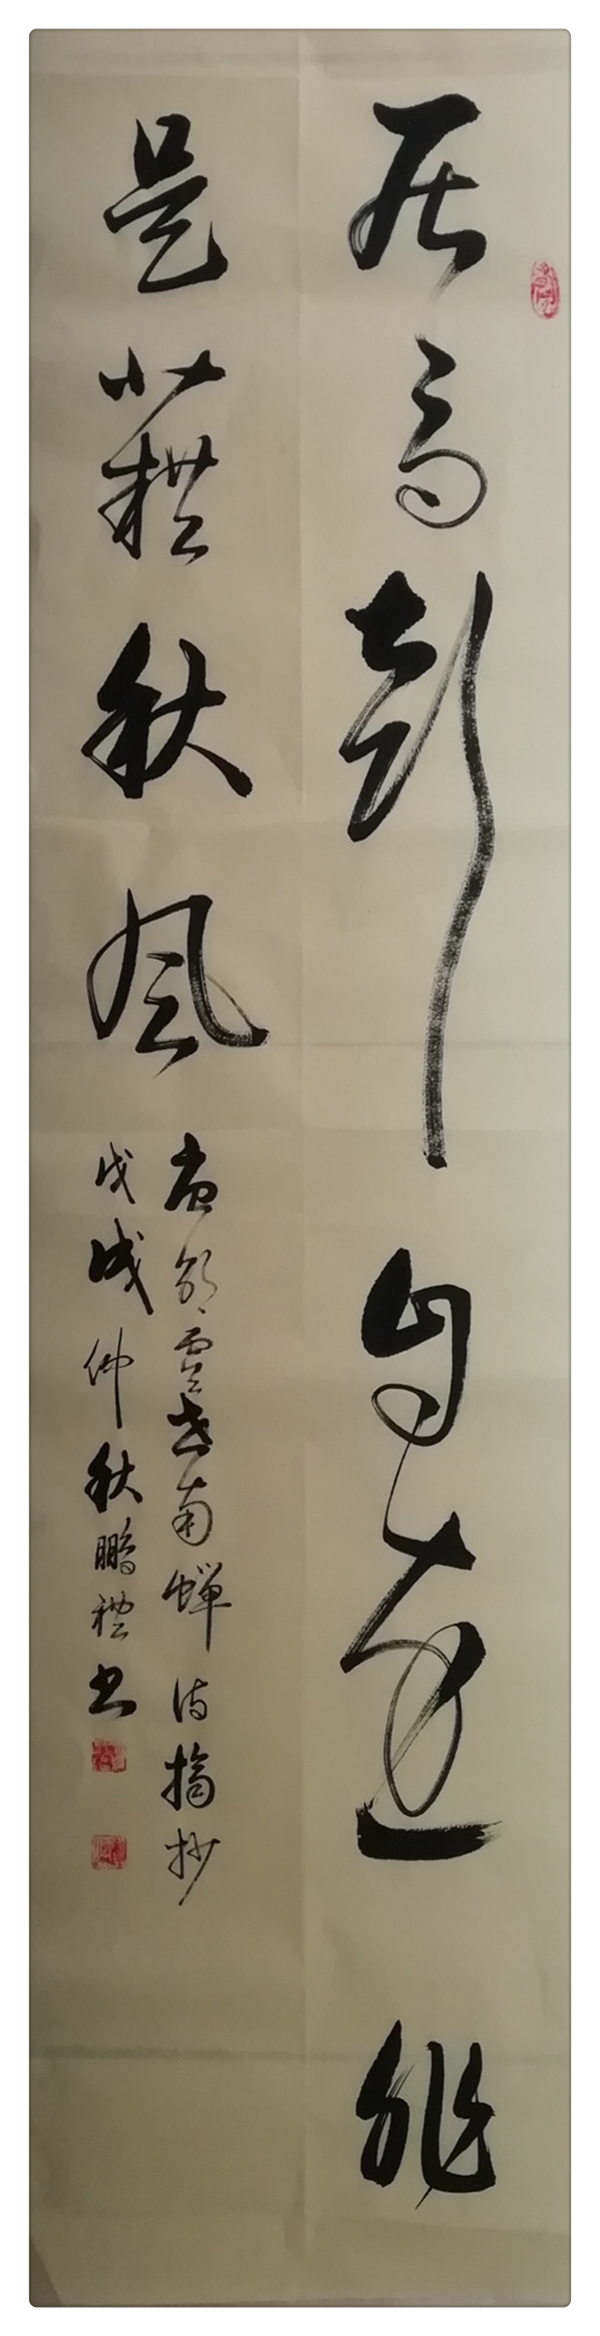 居高聲自遠非
是藉秋風
虞世南蝉诗摘抄
戊戌仲秋鹏禮书